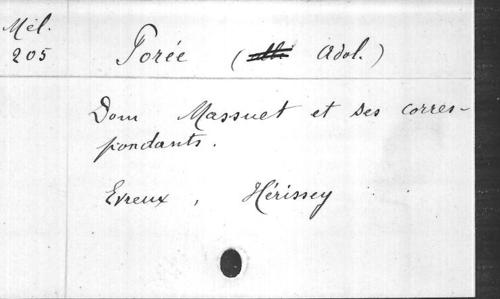 Mél.
205
Porée ( Adol.)
Dom Massuet et ses corres-
pondants.
Evreux, Hérissey